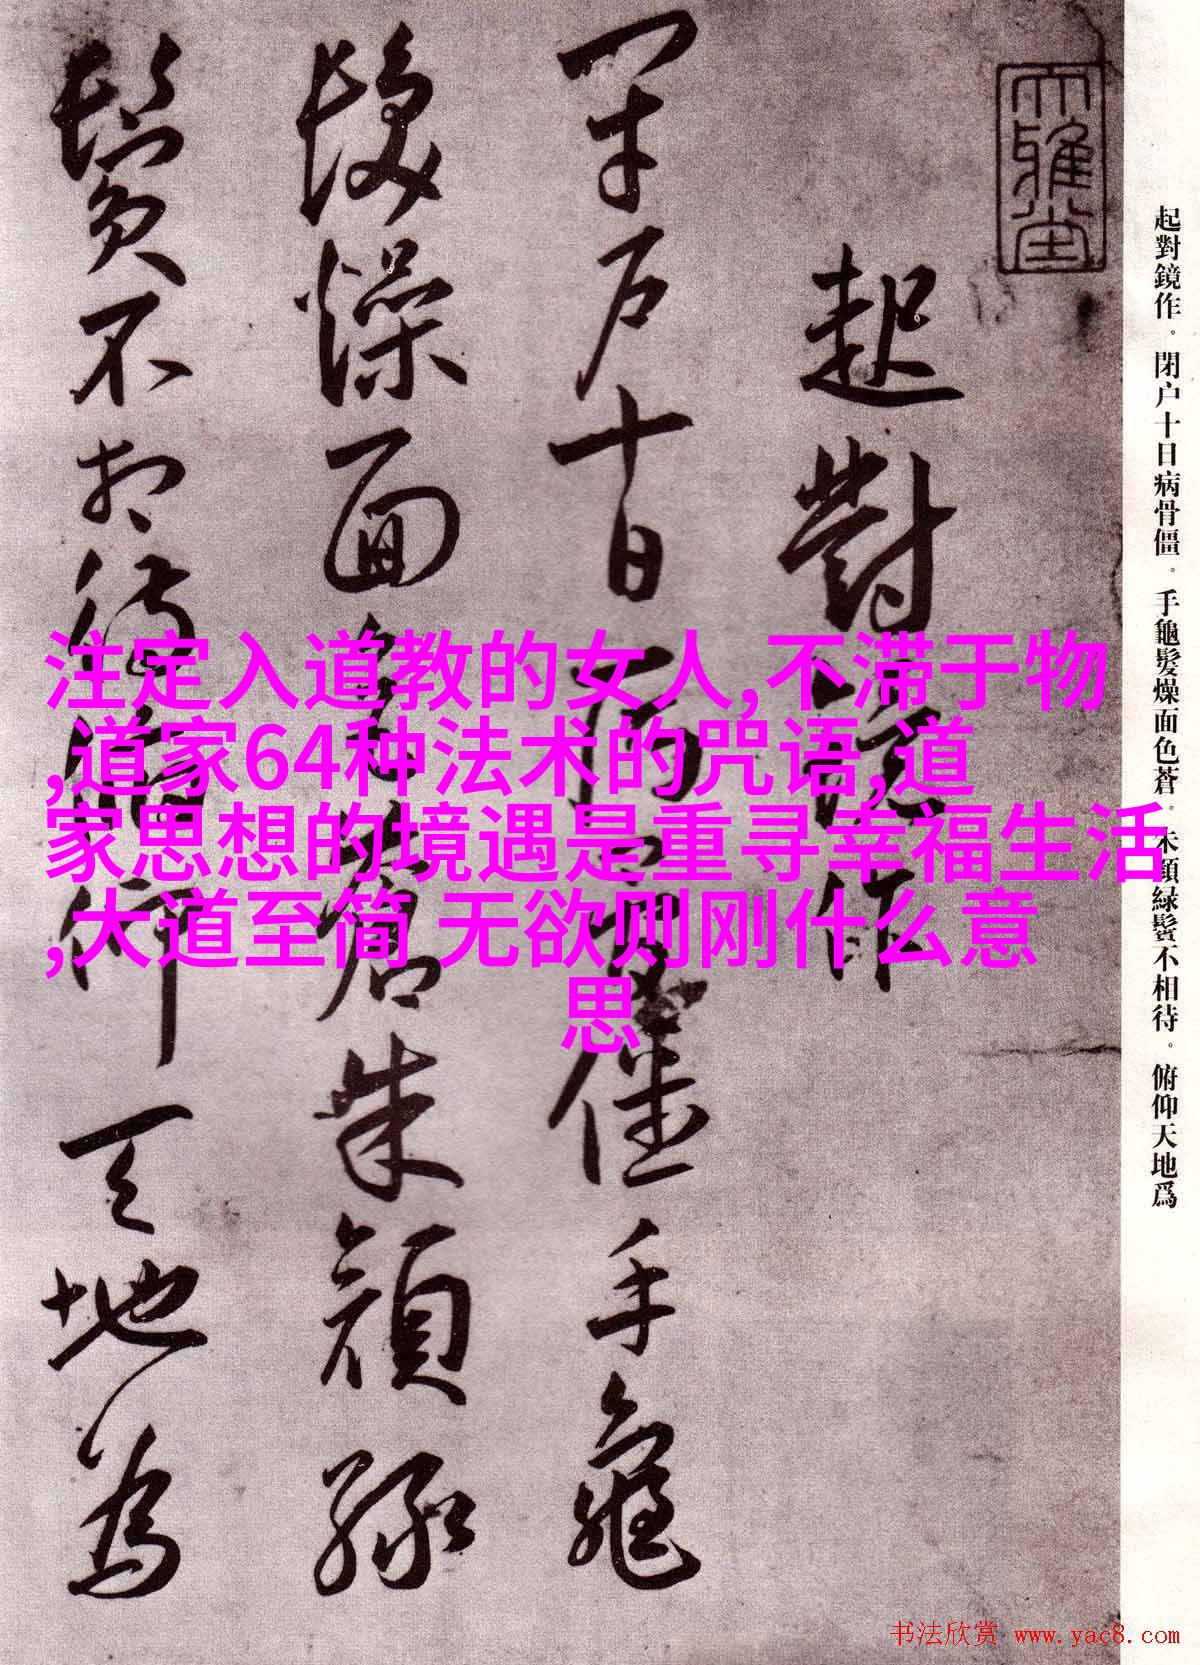 起對鏡作。閉户十日病骨僵。手龜髮燥面色蒼。朱顏綠鬢不相待。俯仰天地爲
大雅堂
起對鏡作
閉户十日病骨僵手龜
髮燥面色蒼朱顏綠
鬢不相待俯仰天地為
注定入道教的女人,不滞于物
,道家64种法术的咒语,道
家思想的境遇是重寻幸福生活
,大道至简 无欲则刚什么意
思
书法欣赏 www.yac8.com